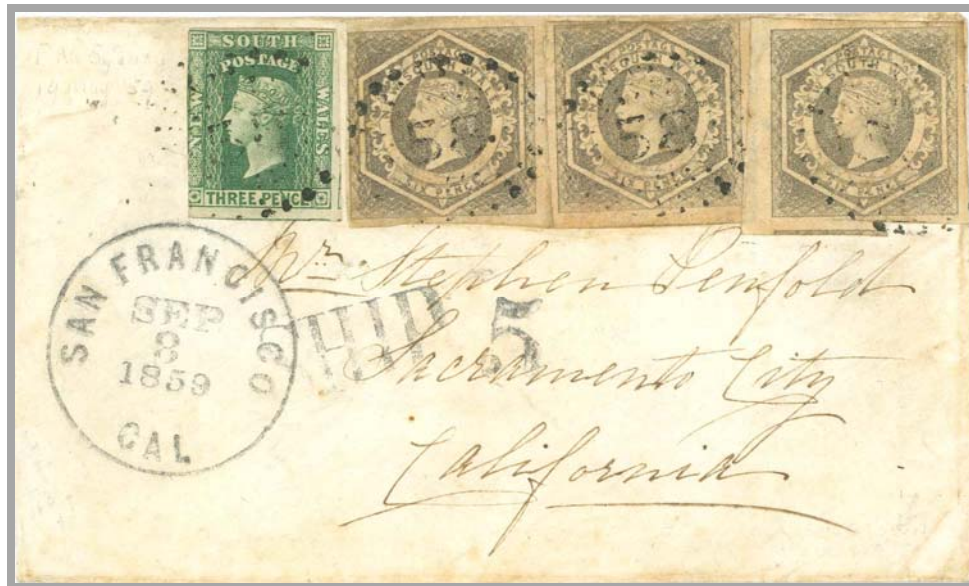 SOUTH
POSTAGE
NEW
WALES
THREE PENCE
POSTAGE
NEW SOUTH WALES
SIX PENCE
52
POSTAGE
SOUTH WALES
SIX PENCE
52
POSTAGE
SOUTH WA
SIX PENCE
SAN FRANCISCO
SEP
8
1859
CAL
5
Mr Stephen Penfold
Sacramento City
California